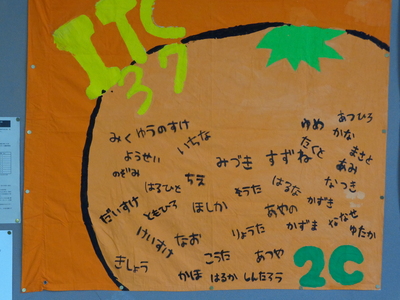 ITC
37
ゆめ あつひろ
みく ゆうのすけ いちな かな
たくと まさと
ようせい みづき すずね あみ
のぞみ
はるひと ちえ そうた はるな なつき
かずき
だいすけ ともひろ ほしか あやの ななせ
りょうた かずま ゆたか
けいすけ なお
きしょう こうた あつや
かほ はるか しんたろう
2C